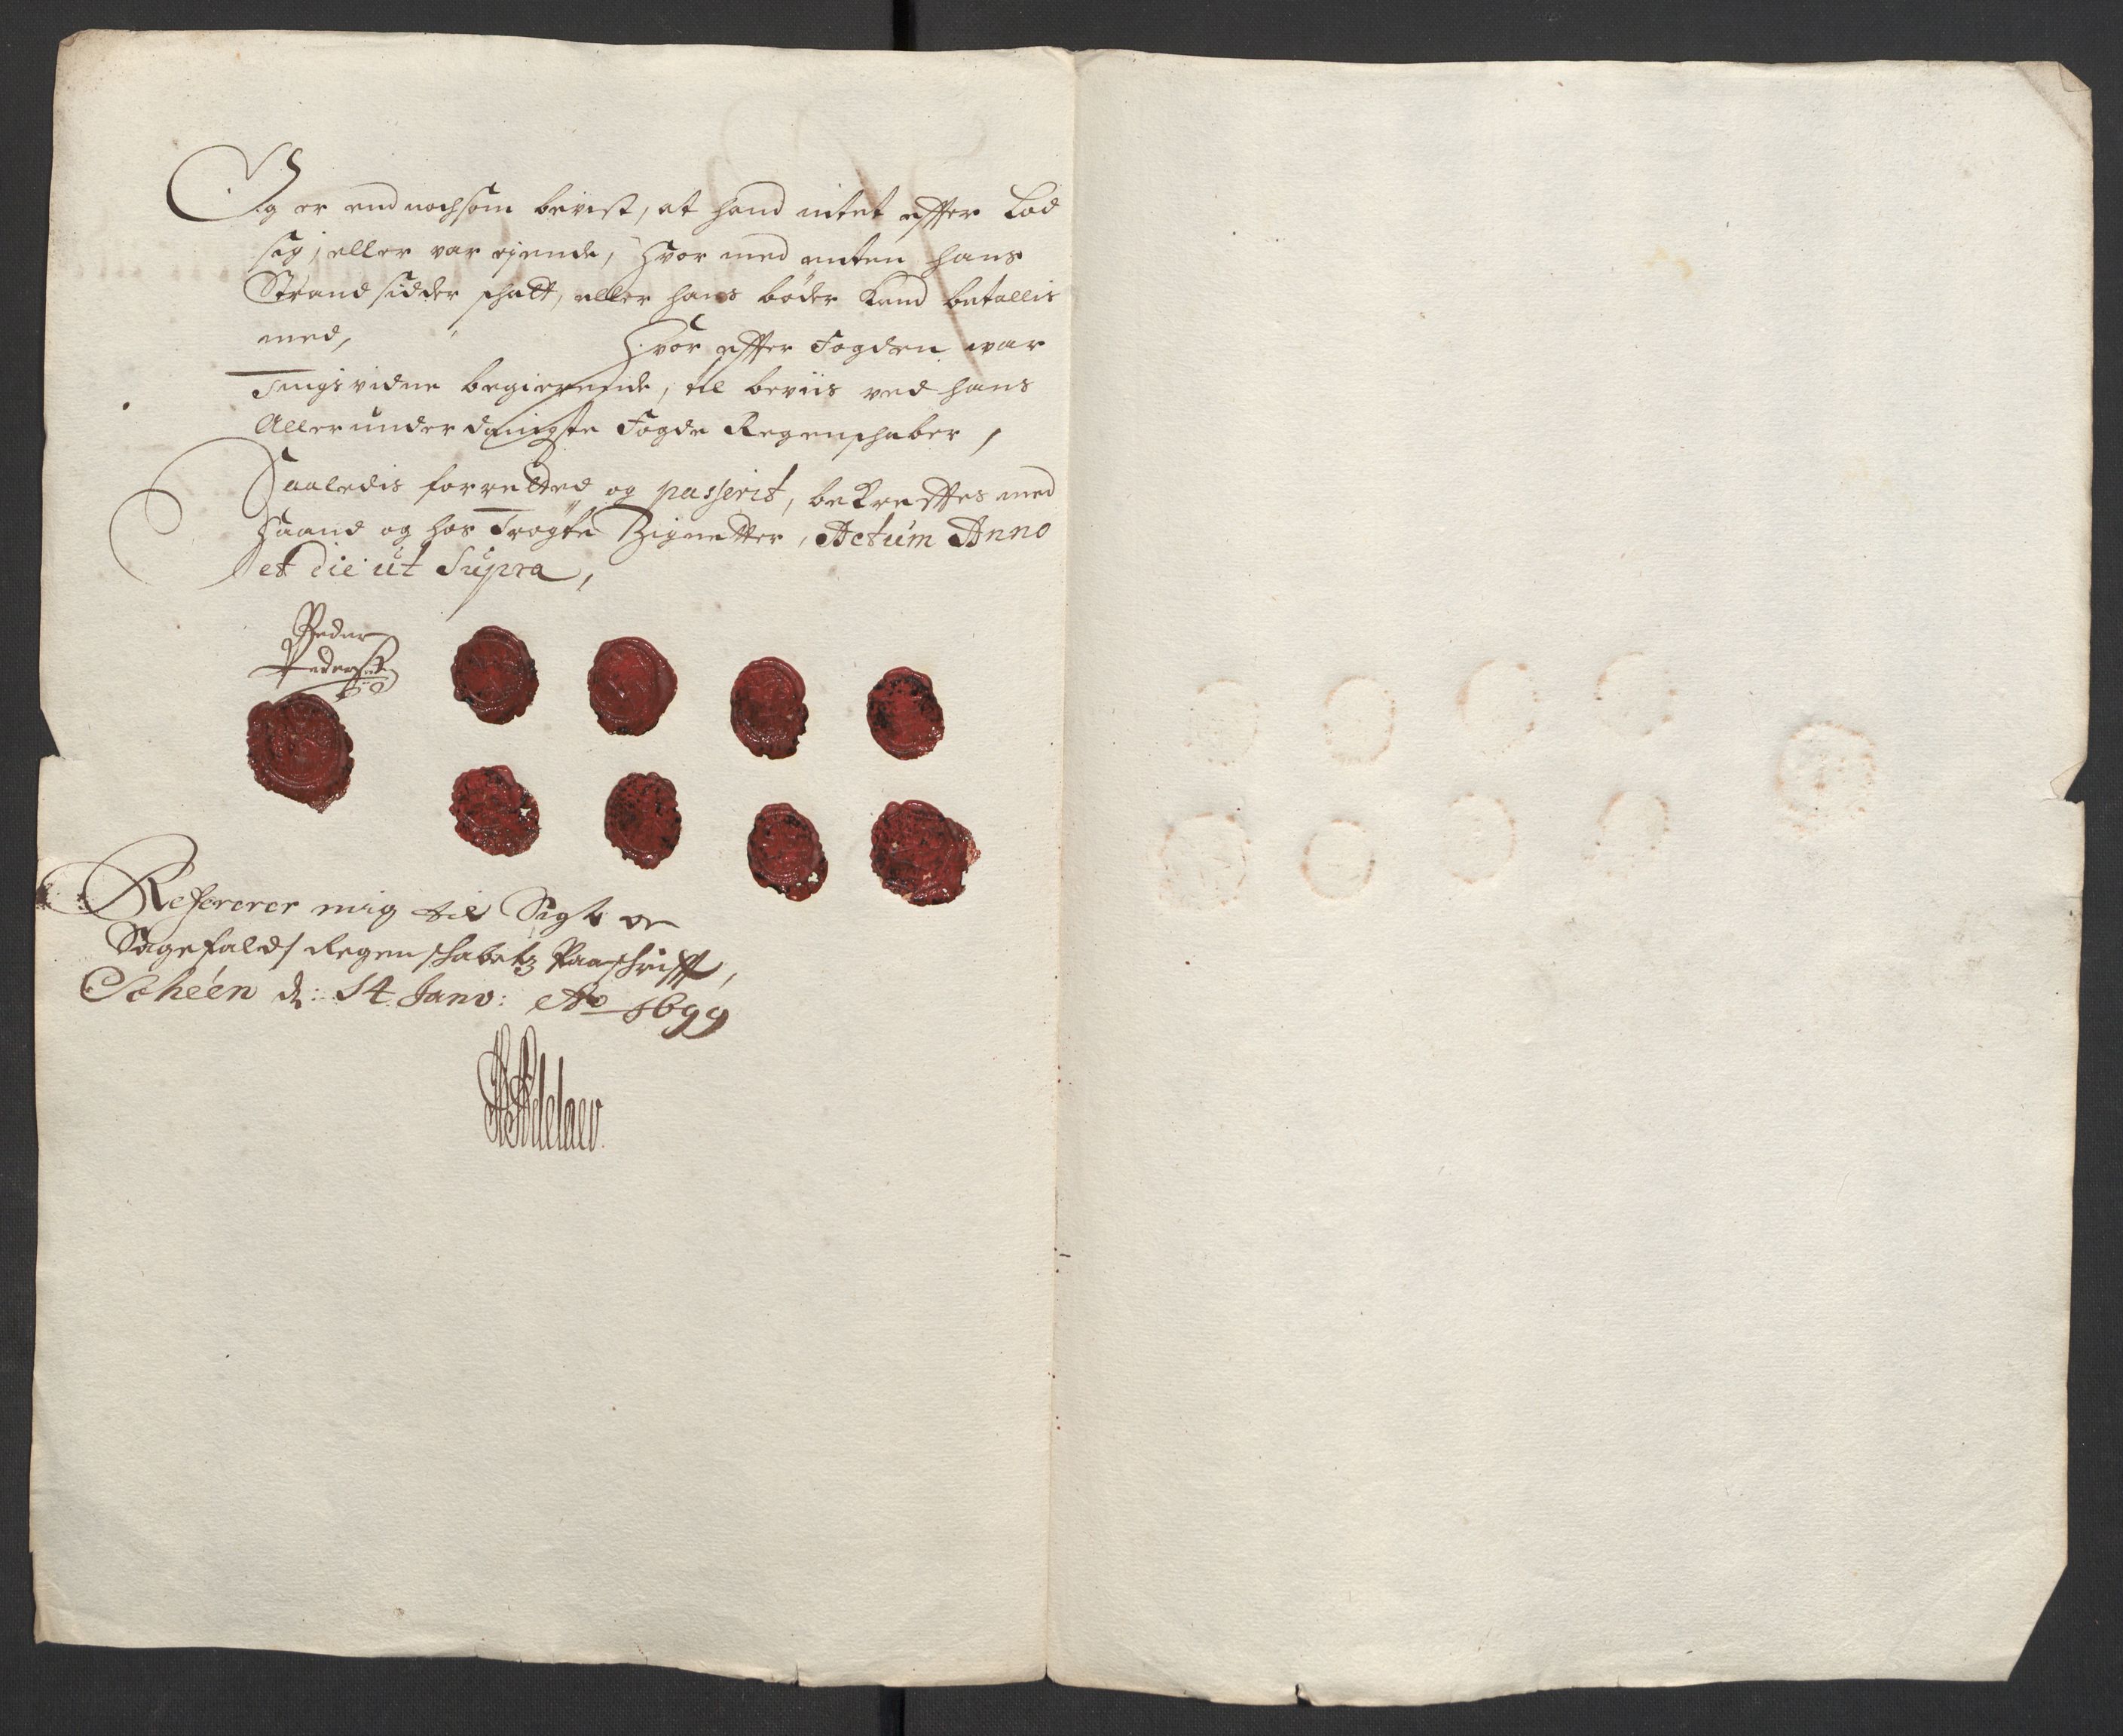 Og er end nochsom bevist, at hand intet effter Lod
sig, eller var ejende, Hvor med enten hans
Strandsidder schatt, eller hans bøder kand betallis
med, Hvor effter Fogden war
Tingsvidne begierende, til beviis ved hans
Allerunderdanigste Fogde Regenschaber,
Saaledis forretted og passerit, bekrefftes med
Haand og hos Trögte Zignetter, Actum Anno
et die ut Supra,
Peder
Pederss
Refererer mig til Sigt oc
Sagefalds Regenschabetz Paaschrifft,
Scheén d: 14 Janv: Ao 1699
Adelaer